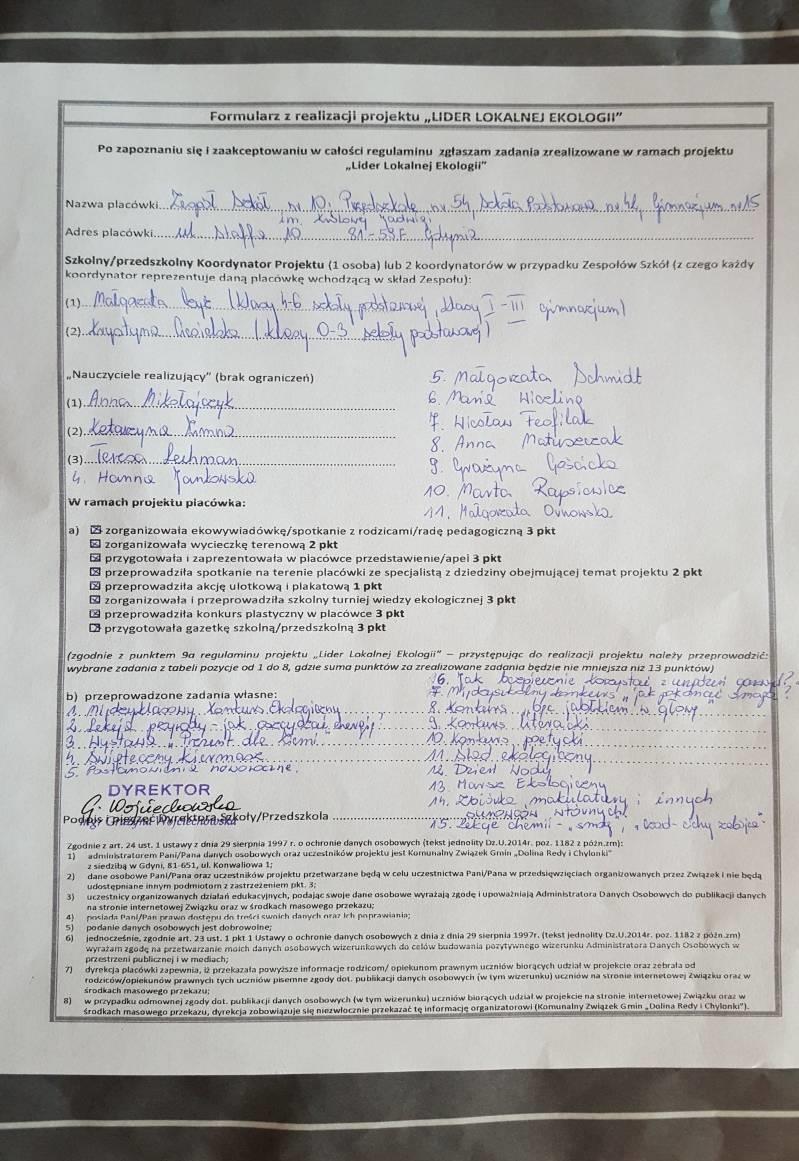 Formularz z realizacji projektu „LIDER LOKALNEJ EKOLOGII”
Po zapoznaniu się i zaakceptowaniu w całości regulaminu zgłaszam zadania zrealizowane w ramach projektu
„Lider Lokalnej Ekologii”
Nazwa placówki Zespół Szkół nr 10; Przedszkole nr 54, Szkoła Podstawowa nr 42, Gimnazjum nr 15
im. Królowej Jadwigi
Adres placówki ul. Staffa 10 Gdynia
Szkolny/przedszkolny Koordynator Projektu (1 osoba) lub 2 koordynatorów w przypadku Zespołów Szkół (z czego każdy
koordynator reprezentuje daną placówkę wchodzącą w skład Zespołu):
(1) Małgorzata (klasy 4-6 szkoły podstawowej, klasy I-III gimnazjum)
(2) Krystyna Ciesielska (klasy 0-3 szkoły podstawowej)
„Nauczyciele realizujący” (brak ograniczeń)
(1) Anna Mikołajczyk
(2) Katarzyna Zimna
(3) Teresa Lechman
4. Hanna Jankowska
5. Małgorzata Schmidt
6. Maria
7. Wiesław Feofilak
8. Anna Matuszczak
9. Grażyna Gościcka
10. Marta Rapsiewicz
11. Małgorzata
W ramach projektu placówka:
a) ☒ zorganizowała ekowywiadówkę/spotkanie z rodzicami/radę pedagogiczną 3 pkt
☒ zorganizowała wycieczkę terenową 2 pkt
☒ przygotowała i zaprezentowała w placówce przedstawienie/apel 3 pkt
☒ przeprowadziła spotkanie na terenie placówki ze specjalistą z dziedziny obejmującej temat projektu 2 pkt
☒ przeprowadziła akcję ulotkową i plakatową 1 pkt
☒ zorganizowała i przeprowadziła szkolny turniej wiedzy ekologicznej 3 pkt
☒ przeprowadziła konkurs plastyczny w placówce 3 pkt
☒ przygotowała gazetkę szkolną/przedszkolną 3 pkt
(zgodnie z punktem 9a regulaminu projektu „Lider Lokalnej Ekologii” – przystępując do realizacji projektu należy przeprowadzić:
wybrane zadania z tabeli pozycje od 1 do 8, gdzie suma punktów za zrealizowane zadania będzie nie mniejsza niż 13 punktów)
b) przeprowadzone zadania własne:
1. Międzyklasowy Konkurs Ekologiczny
2. Lekcja przyrody - jak oszczędzać energię
3. Wystawa „Prezent dla Ziemi”
4. Świąteczny kiermasz
5. Postanowienia noworoczne.
16. Jak bezpiecznie korzystać z urządzeń gazowych?
17. Międzyszkolny konkurs „Jak pokonać smoga?
8. Konkurs „Eko jabłkiem w głowę”
9. Konkurs literacki
10. Konkurs poetycki
11. Ślad ekologiczny
12. Dzień Wody
13. Marsz Ekologiczny
14. Zbiórka makulatury i innych
surowców wtórnych.
15. Lekcje chemii - „smog”, „czad-cichy zabójca”
DYREKTOR
G. Wojciechowska
mgr Grażyna Wojciechowska
Podpis i pieczęć Dyrektora Szkoły/Przedszkola
Zgodnie z art. 24 ust. 1 ustawy z dnia 29 sierpnia 1997 r. o ochronie danych osobowych (tekst jednolity Dz.U.2014r. poz. 1182 z późn.zm):
1) administratorem Pani/Pana danych osobowych oraz uczestników projektu jest Komunalny Związek Gmin „Dolina Redy i Chylonki”
z siedzibą w Gdyni, 81-651, ul. Konwaliowa 1;
2) dane osobowe Pani/Pana oraz uczestników projektu przetwarzane będą w celu uczestnictwa Pani/Pana w przedsięwzięciach organizowanych przez Związek i nie będą
udostępniane innym podmiotom z zastrzeżeniem pkt. 3;
3) uczestnicy organizowanych działań edukacyjnych, podając swoje dane osobowe wyrażają zgodę i upoważniają Administratora Danych Osobowych do publikacji danych
na stronie internetowej Związku oraz w środkach masowego przekazu;
4) posiada Pani/Pan prawo dostępu do treści swoich danych oraz ich poprawiania;
5) podanie danych osobowych jest dobrowolne;
6) jednocześnie, zgodnie art. 23 ust. 1 pkt 1 Ustawy o ochronie danych osobowych z dnia z dnia 29 sierpnia 1997r. (tekst jednolity Dz.U.2014r. poz. 1182 z późn.zm)
wyrażam zgodę na przetwarzanie moich danych osobowych wizerunkowych do celów budowania pozytywnego wizerunku Administratora Danych Osobowych w
przestrzeni publicznej i w mediach;
7) dyrekcja placówki zapewnia, iż przekazała powyższe informacje rodzicom/ opiekunom prawnym uczniów biorących udział w projekcie oraz zebrała od
rodziców/opiekunów prawnych tych uczniów pisemne zgody dot. publikacji danych osobowych (w tym wizerunku) uczniów na stronie internetowej Związku oraz w
środkach masowego przekazu;
8) w przypadku odmownej zgody dot. publikacji danych osobowych (w tym wizerunku) uczniów biorących udział w projekcie na stronie internetowej Związku oraz w
środkach masowego przekazu, dyrekcja zobowiązuje się niezwłocznie przekazać tę informację organizatorowi (Komunalny Związek Gmin „Dolina Redy i Chylonki”).